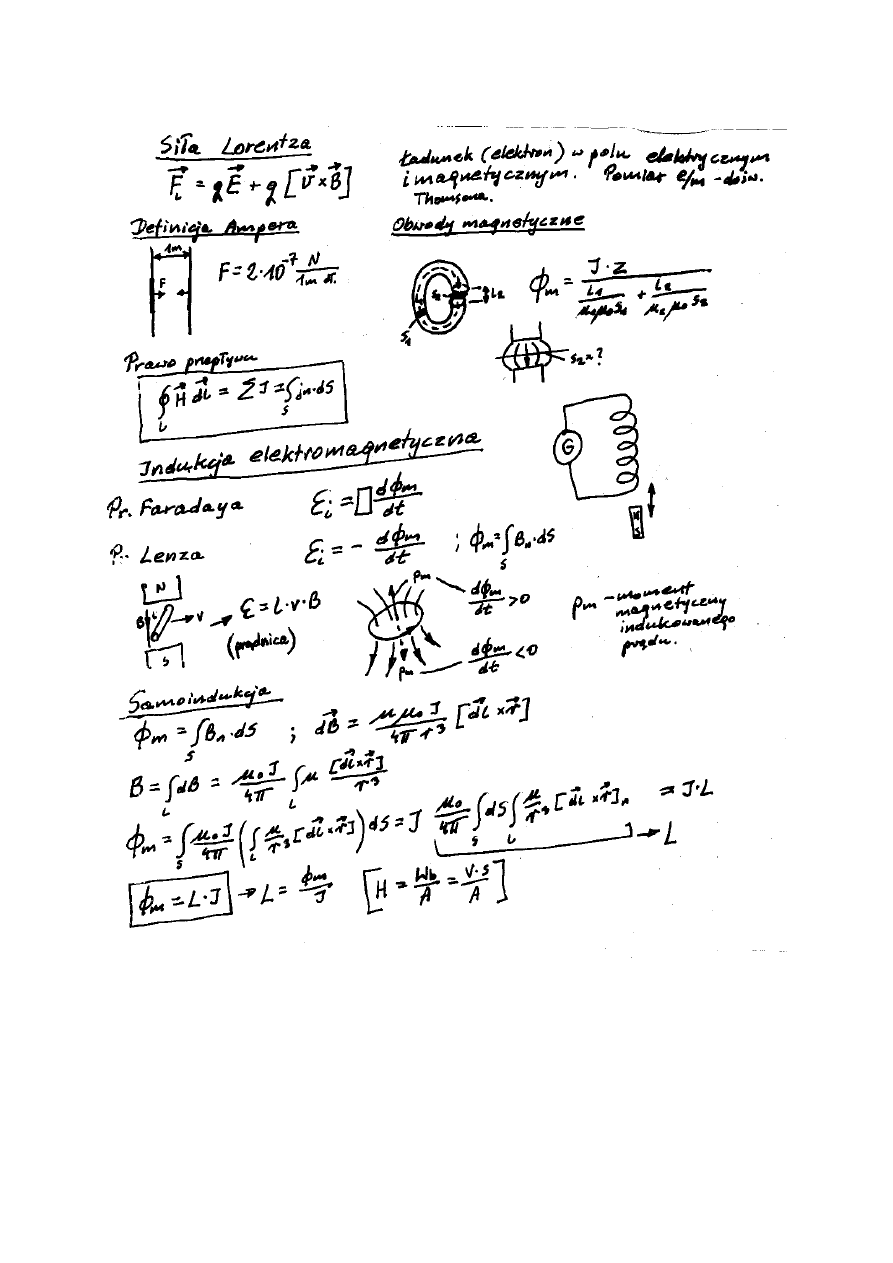 Siła Lorentza
F⃗_L = qE⃗ + q[v⃗×B⃗]
Ładunek (elektron) w polu elektrycznym
i magnetycznym. Pomiar e/m - dośw.
Thomsona.
Definicja Ampera
1m
F
F = 2·10⁻⁷ N/1m dł.
Obwody magnetyczne
S₂
L₂
S₁
ϕ_m = J·Z / (L₁/μ₁μ₀S₁ + L₂/μ₂μ₀S₂)
S₂=?
Prawo przepływu
∮_L H⃗ dL⃗ = ΣJ = ∫_S j_n·dS
G
N
S
Indukcja elektromagnetyczna
Pr. Faradaya ℰ_i = □ dϕ_m/dt
P.. Lenza ℰ_i = - dϕ_m/dt ; ϕ_m = ∫_S B_n·dS
N
B L v → ℰ = L·v·B
(prądnica)
S
p_m
dϕ_m/dt > 0
p_m
dϕ_m/dt < 0
p_m - moment
magnetyczny
indukowanego
prądu.
Samoindukcja
ϕ_m = ∫_S B_n·dS ; dB⃗ = μμ₀J/4πr³ [dL⃗×r⃗]
B = ∫_L dB = μ₀J/4π ∫_L μ [dL⃗×r⃗]/r³
ϕ_m = ∫_S μ₀J/4π (∫_L μ/r³ [dL⃗×r⃗]) dS = J μ₀/4π ∫_S dS ∫_L μ/r³ [dL⃗×r⃗]_n = J·L
→ L
ϕ_m = L·J → L = ϕ_m/J [H = Wb/A = V·s/A]